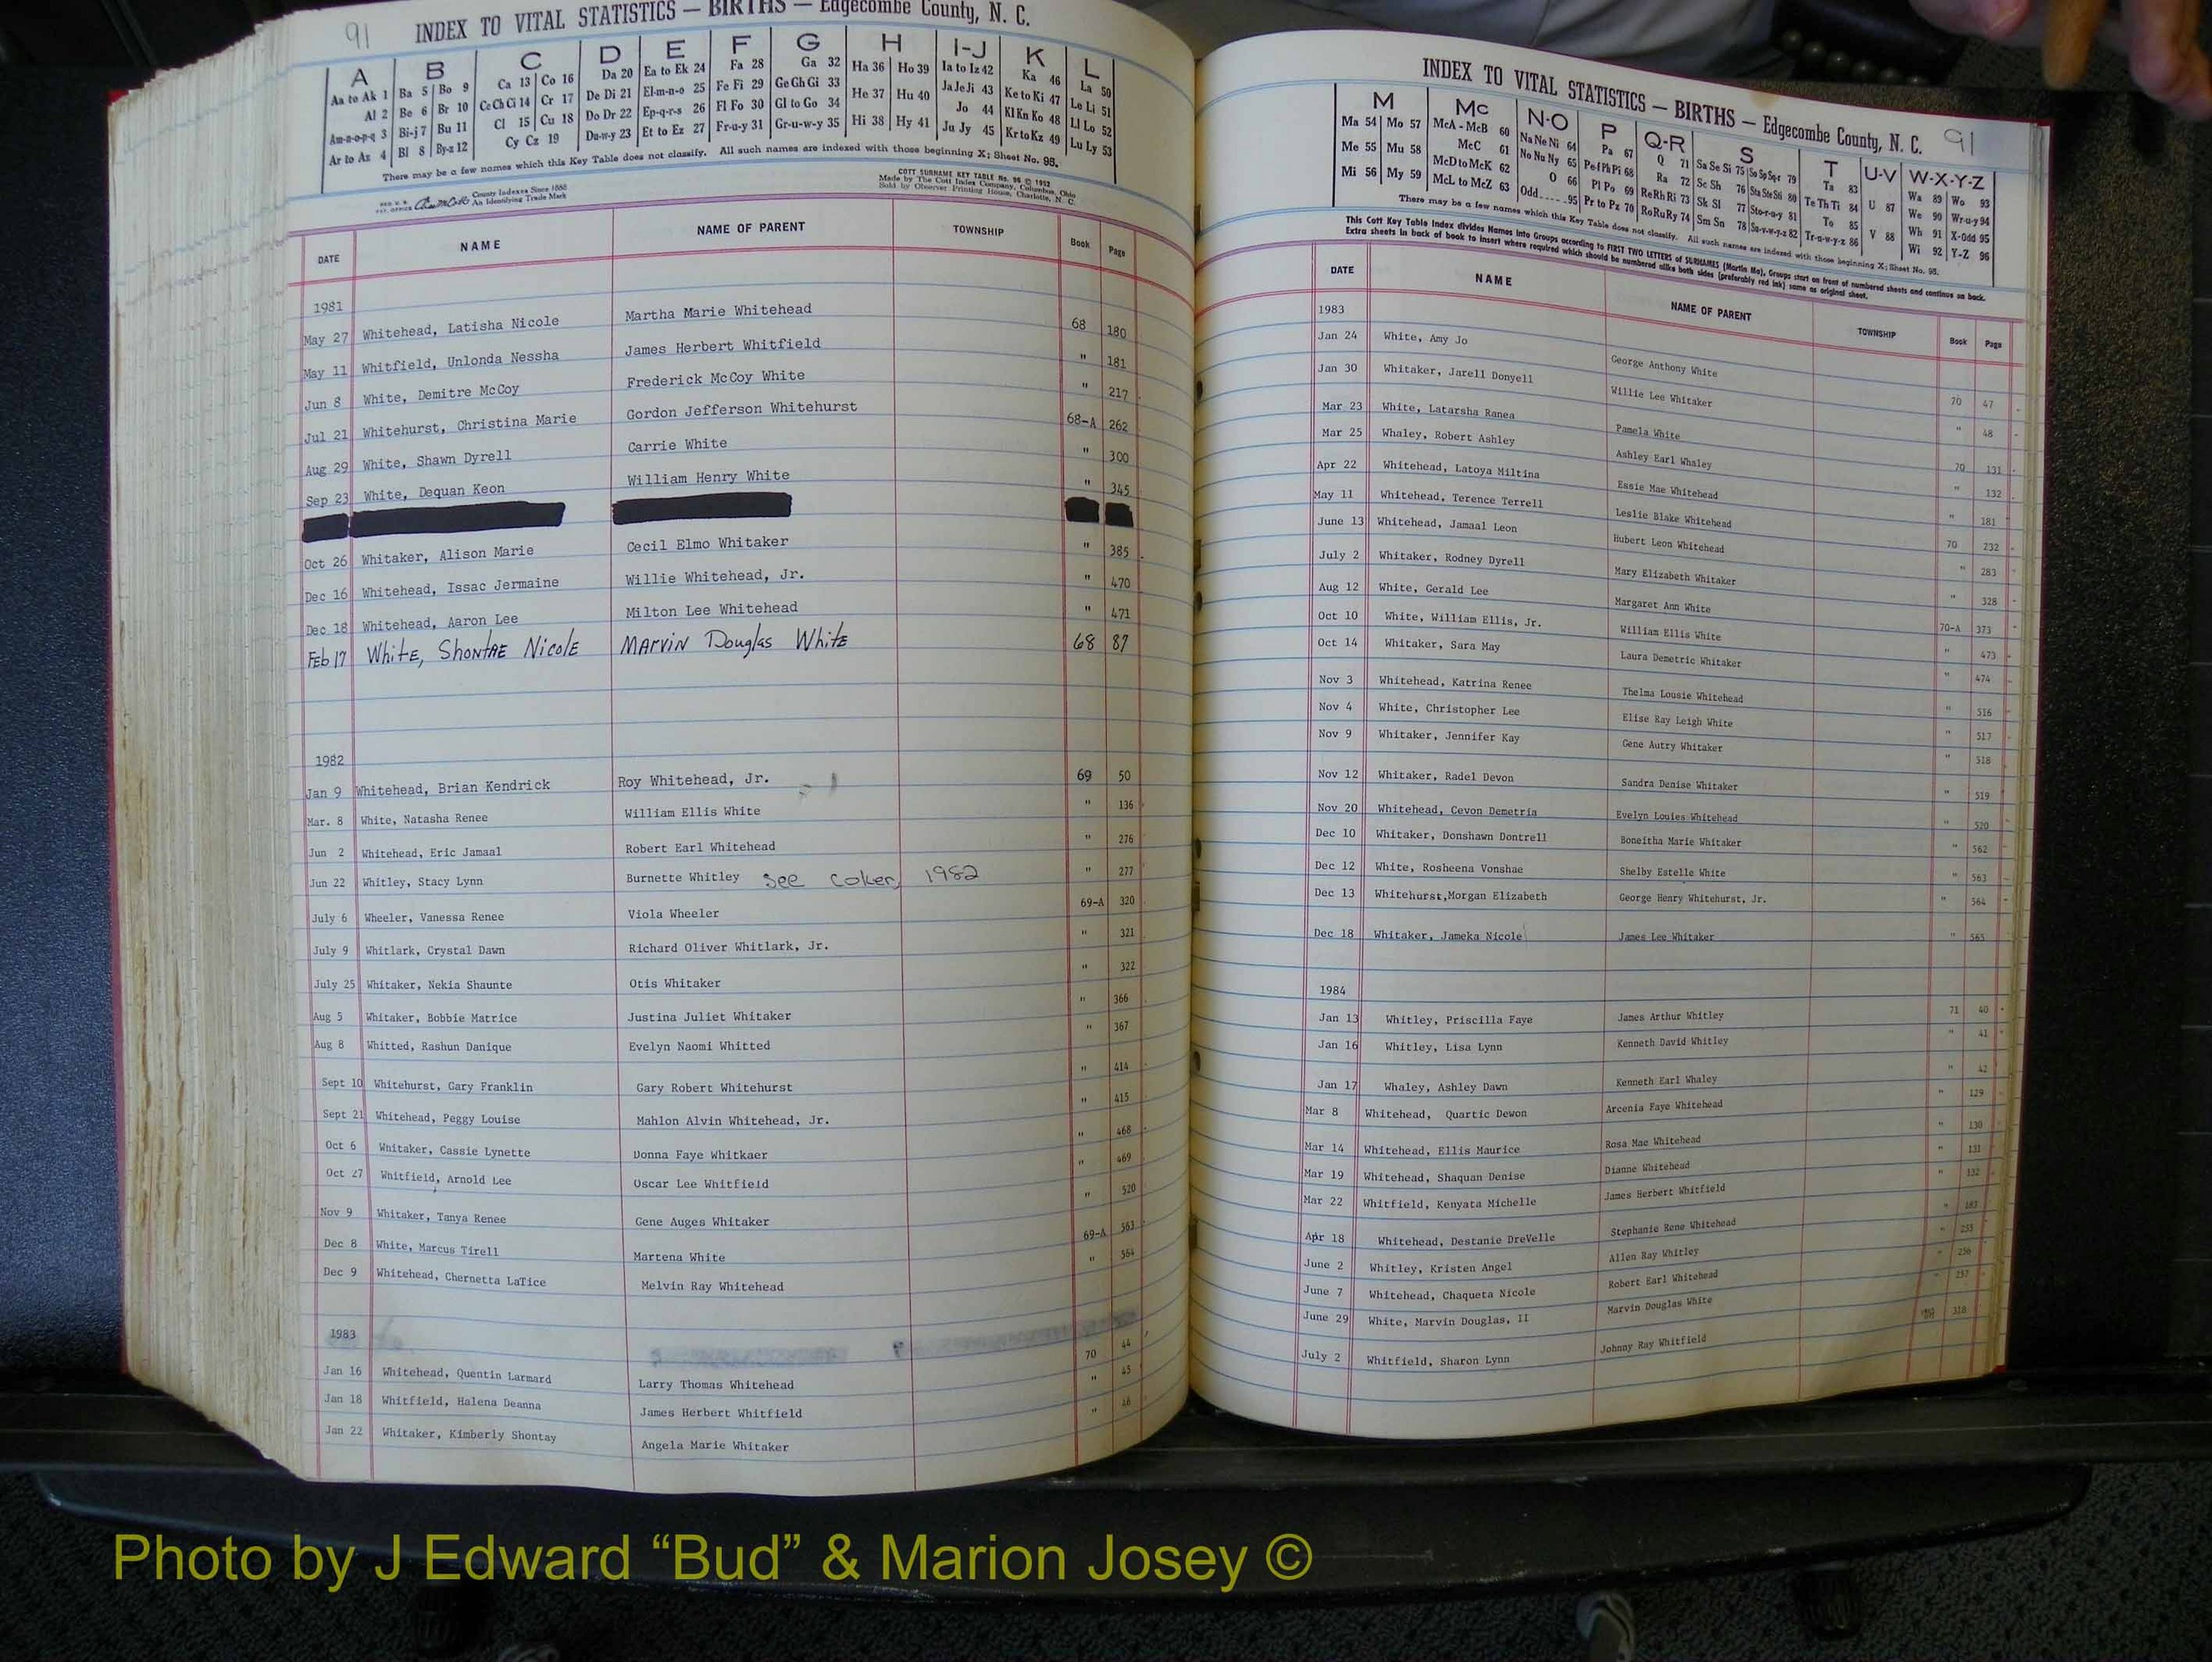 91 INDEX TO VITAL STATISTICS — BIRTHS — Edgecombe County, N. C.
A B C D E F G H I-J K L
Aa to Ak 1 Ba 5 Bo 9 Ca 13 Co 16 Da 20 Ea to Ek 24 Fa 28 Ga 32 Ha 36 Ho 39 Ia to Iz 42 Ka 46 La 50
Al 2 Be 6 Br 10 Ce Ch Ci 14 Cr 17 De Di 21 El-m-n-o 25 Fe Fi 29 Ge Gh Gi 33 He 37 Hu 40 Ja Je Ji 43 Ke to Ki 47 Le Li 51
Am-n-o-p-q 3 Bi-j 7 Bu 11 Cl 15 Cu 18 Do Dr 22 Ep-q-r-s 26 Fl Fo 30 Gl to Go 34 Hi 38 Hy 41 Jo 44 Kl Kn Ko 48 Ll Lo 52
Ar to Az 4 Bl 8 By-z 12 Cy Cz 19 Du-w-y 23 Et to Ez 27 Fr-u-y 31 Gr-u-w-y 35 Ju Jy 45 Kr to Kz 49 Lu Ly 53
There may be a few names which this Key Table does not classify. All such names are indexed with those beginning X; Sheet No. 95.
County Indexes Since 1888
An Identifying Trade Mark
COTT SURNAME KEY TABLE No. 96 © 1952
Made by The Cott Index Company, Columbus, Ohio
Sold by Observer Printing House, Charlotte, N. C.
DATE NAME NAME OF PARENT TOWNSHIP Book Page
1981
May 27 Whitehead, Latisha Nicole Martha Marie Whitehead 68 180
May 11 Whitfield, Unlonda Nessha James Herbert Whitfield " 181
Jun 8 White, Demitre McCoy Frederick McCoy White " 217
Jul 21 Whitehurst, Christina Marie Gordon Jefferson Whitehurst 68-A 262
Aug 29 White, Shawn Dyrell Carrie White " 300
Sep 23 White, Dequan Keon William Henry White " 345
Oct 26 Whitaker, Alison Marie Cecil Elmo Whitaker " 385
Dec 16 Whitehead, Issac Jermaine Willie Whitehead, Jr. " 470
Dec 18 Whitehead, Aaron Lee Milton Lee Whitehead " 471
Feb 17 White, Shontae Nicole Marvin Douglas White 68 87
1982
Jan 9 Whitehead, Brian Kendrick Roy Whitehead, Jr. 69 50
Mar. 8 White, Natasha Renee William Ellis White " 136
Jun 2 Whitehead, Eric Jamaal Robert Earl Whitehead " 276
Jun 22 Whitley, Stacy Lynn Burnette Whitley See Coker, 1982 " 277
July 6 Wheeler, Vanessa Renee Viola Wheeler 69-A 320
July 9 Whitlark, Crystal Dawn Richard Oliver Whitlark, Jr. " 321
July 25 Whitaker, Nekia Shaunte Otis Whitaker " 322
Aug 5 Whitaker, Bobbie Matrice Justina Juliet Whitaker " 366
Aug 8 Whitted, Rashun Danique Evelyn Naomi Whitted " 367
Sept 10 Whitehurst, Gary Franklin Gary Robert Whitehurst " 414
Sept 21 Whitehead, Peggy Louise Mahlon Alvin Whitehead, Jr. " 415
Oct 6 Whitaker, Cassie Lynette Donna Faye Whitkaer " 468
Oct 27 Whitfield, Arnold Lee Oscar Lee Whitfield " 469
Nov 9 Whitaker, Tanya Renee Gene Auges Whitaker " 520
Dec 8 White, Marcus Tirell Martena White 69-A 563
Dec 9 Whitehead, Chernetta LaTice Melvin Ray Whitehead " 564
1983
Jan 16 Whitehead, Quentin Larmard Larry Thomas Whitehead 70 44
Jan 18 Whitfield, Halena Deanna James Herbert Whitfield " 45
Jan 22 Whitaker, Kimberly Shontay Angela Marie Whitaker " 46
INDEX TO VITAL STATISTICS — BIRTHS — Edgecombe County, N. C. 91
M Mc N-O P Q-R S T U-V W-X-Y-Z
Ma 54 Mo 57 McA - McB 60 Na Ne Ni 64 Pa 67 Q 71 Sa Se Si 75 So Sp Sq-r 79 Ta 83 U 87 Wa 89 Wo 93
Me 55 Mu 58 McC 61 No Nu Ny 65 Pe-f Ph Pi 68 Ra 72 Sc Sh 76 Sta Ste Sti 80 Te Th Ti 84 V 88 We 90 Wr-u-y 94
Mi 56 My 59 McD to McK 62 O 66 Pl Po 69 Re Rh Ri 73 Sk Sl 77 Sto-r-u-y 81 To 85 Wh 91 X-Odd 95
McL to McZ 63 Odd 95 Pr to Pz 70 Ro Ru Ry 74 Sm Sn 78 Su-v-w-y-z 82 Tr-u-w-y-z 86 Wi 92 Y-Z 96
There may be a few names which this Key Table does not classify. All such names are indexed with those beginning X; Sheet No. 95.
This Cott Key Table Index divides Names into Groups according to FIRST TWO LETTERS of SURNAMES (Martin Ma), Groups start on front of numbered sheets and continue on back.
Extra sheets in back of book to insert where required which should be numbered alike both sides (preferably red ink) same as original sheet.
DATE NAME NAME OF PARENT TOWNSHIP Book Page
1983
Jan 24 White, Amy Jo George Anthony White 70 47
Jan 30 Whitaker, Jarell Donyell Willie Lee Whitaker " 48
Mar 23 White, Latarsha Ranea Pamela White 70 131
Mar 25 Whaley, Robert Ashley Ashley Earl Whaley " 132
Apr 22 Whitehead, Latoya Miltina Essie Mae Whitehead " 181
May 11 Whitehead, Terence Terrell Leslie Blake Whitehead 70 232
June 13 Whitehead, Jamaal Leon Hubert Leon Whitehead " 283
July 2 Whitaker, Rodney Dyrell Mary Elizabeth Whitaker " 328
Aug 12 White, Gerald Lee Margaret Ann White 70-A 373
Oct 10 White, William Ellis, Jr. William Ellis White " 473
Oct 14 Whitaker, Sara May Laura Demetric Whitaker " 474
Nov 3 Whitehead, Katrina Renee Thelma Lousie Whitehead " 516
Nov 4 White, Christopher Lee Elise Ray Leigh White " 517
Nov 9 Whitaker, Jennifer Kay Gene Autry Whitaker " 518
Nov 12 Whitaker, Radel Devon Sandra Denise Whitaker " 519
Nov 20 Whitehead, Cevon Demetria Evelyn Louies Whitehead " 520
Dec 10 Whitaker, Donshawn Dontrell Boneitha Marie Whitaker " 562
Dec 12 White, Rosheena Vonshae Shelby Estelle White " 563
Dec 13 Whitehurst,Morgan Elizabeth George Henry Whitehurst, Jr. " 564
Dec 18 Whitaker, Jameka Nicole James Lee Whitaker " 565
1984
Jan 13 Whitley, Priscilla Faye James Arthur Whitley 71 40
Jan 16 Whitley, Lisa Lynn Kenneth David Whitley " 41
Jan 17 Whaley, Ashley Dawn Kenneth Earl Whaley " 42
Mar 8 Whitehead, Quartic Dewon Arcenia Faye Whitehead " 129
Mar 14 Whitehead, Ellis Maurice Rosa Mae Whitehead " 130
Mar 19 Whitehead, Shaquan Denise Dianne Whitehead " 131
Mar 22 Whitfield, Kenyata Michelle James Herbert Whitfield " 132
Apr 18 Whitehead, Destanie DreVelle Stephanie Rene Whitehead " 183
June 2 Whitley, Kristen Angel Allen Ray Whitley "
June 7 Whitehead, Chaqueta Nicole Robert Earl Whitehead " 256
June 29 White, Marvin Douglas, II Marvin Douglas White " 257
July 2 Whitfield, Sharon Lynn Johnny Ray Whitfield 318
Photo by J Edward “Bud” & Marion Josey ©